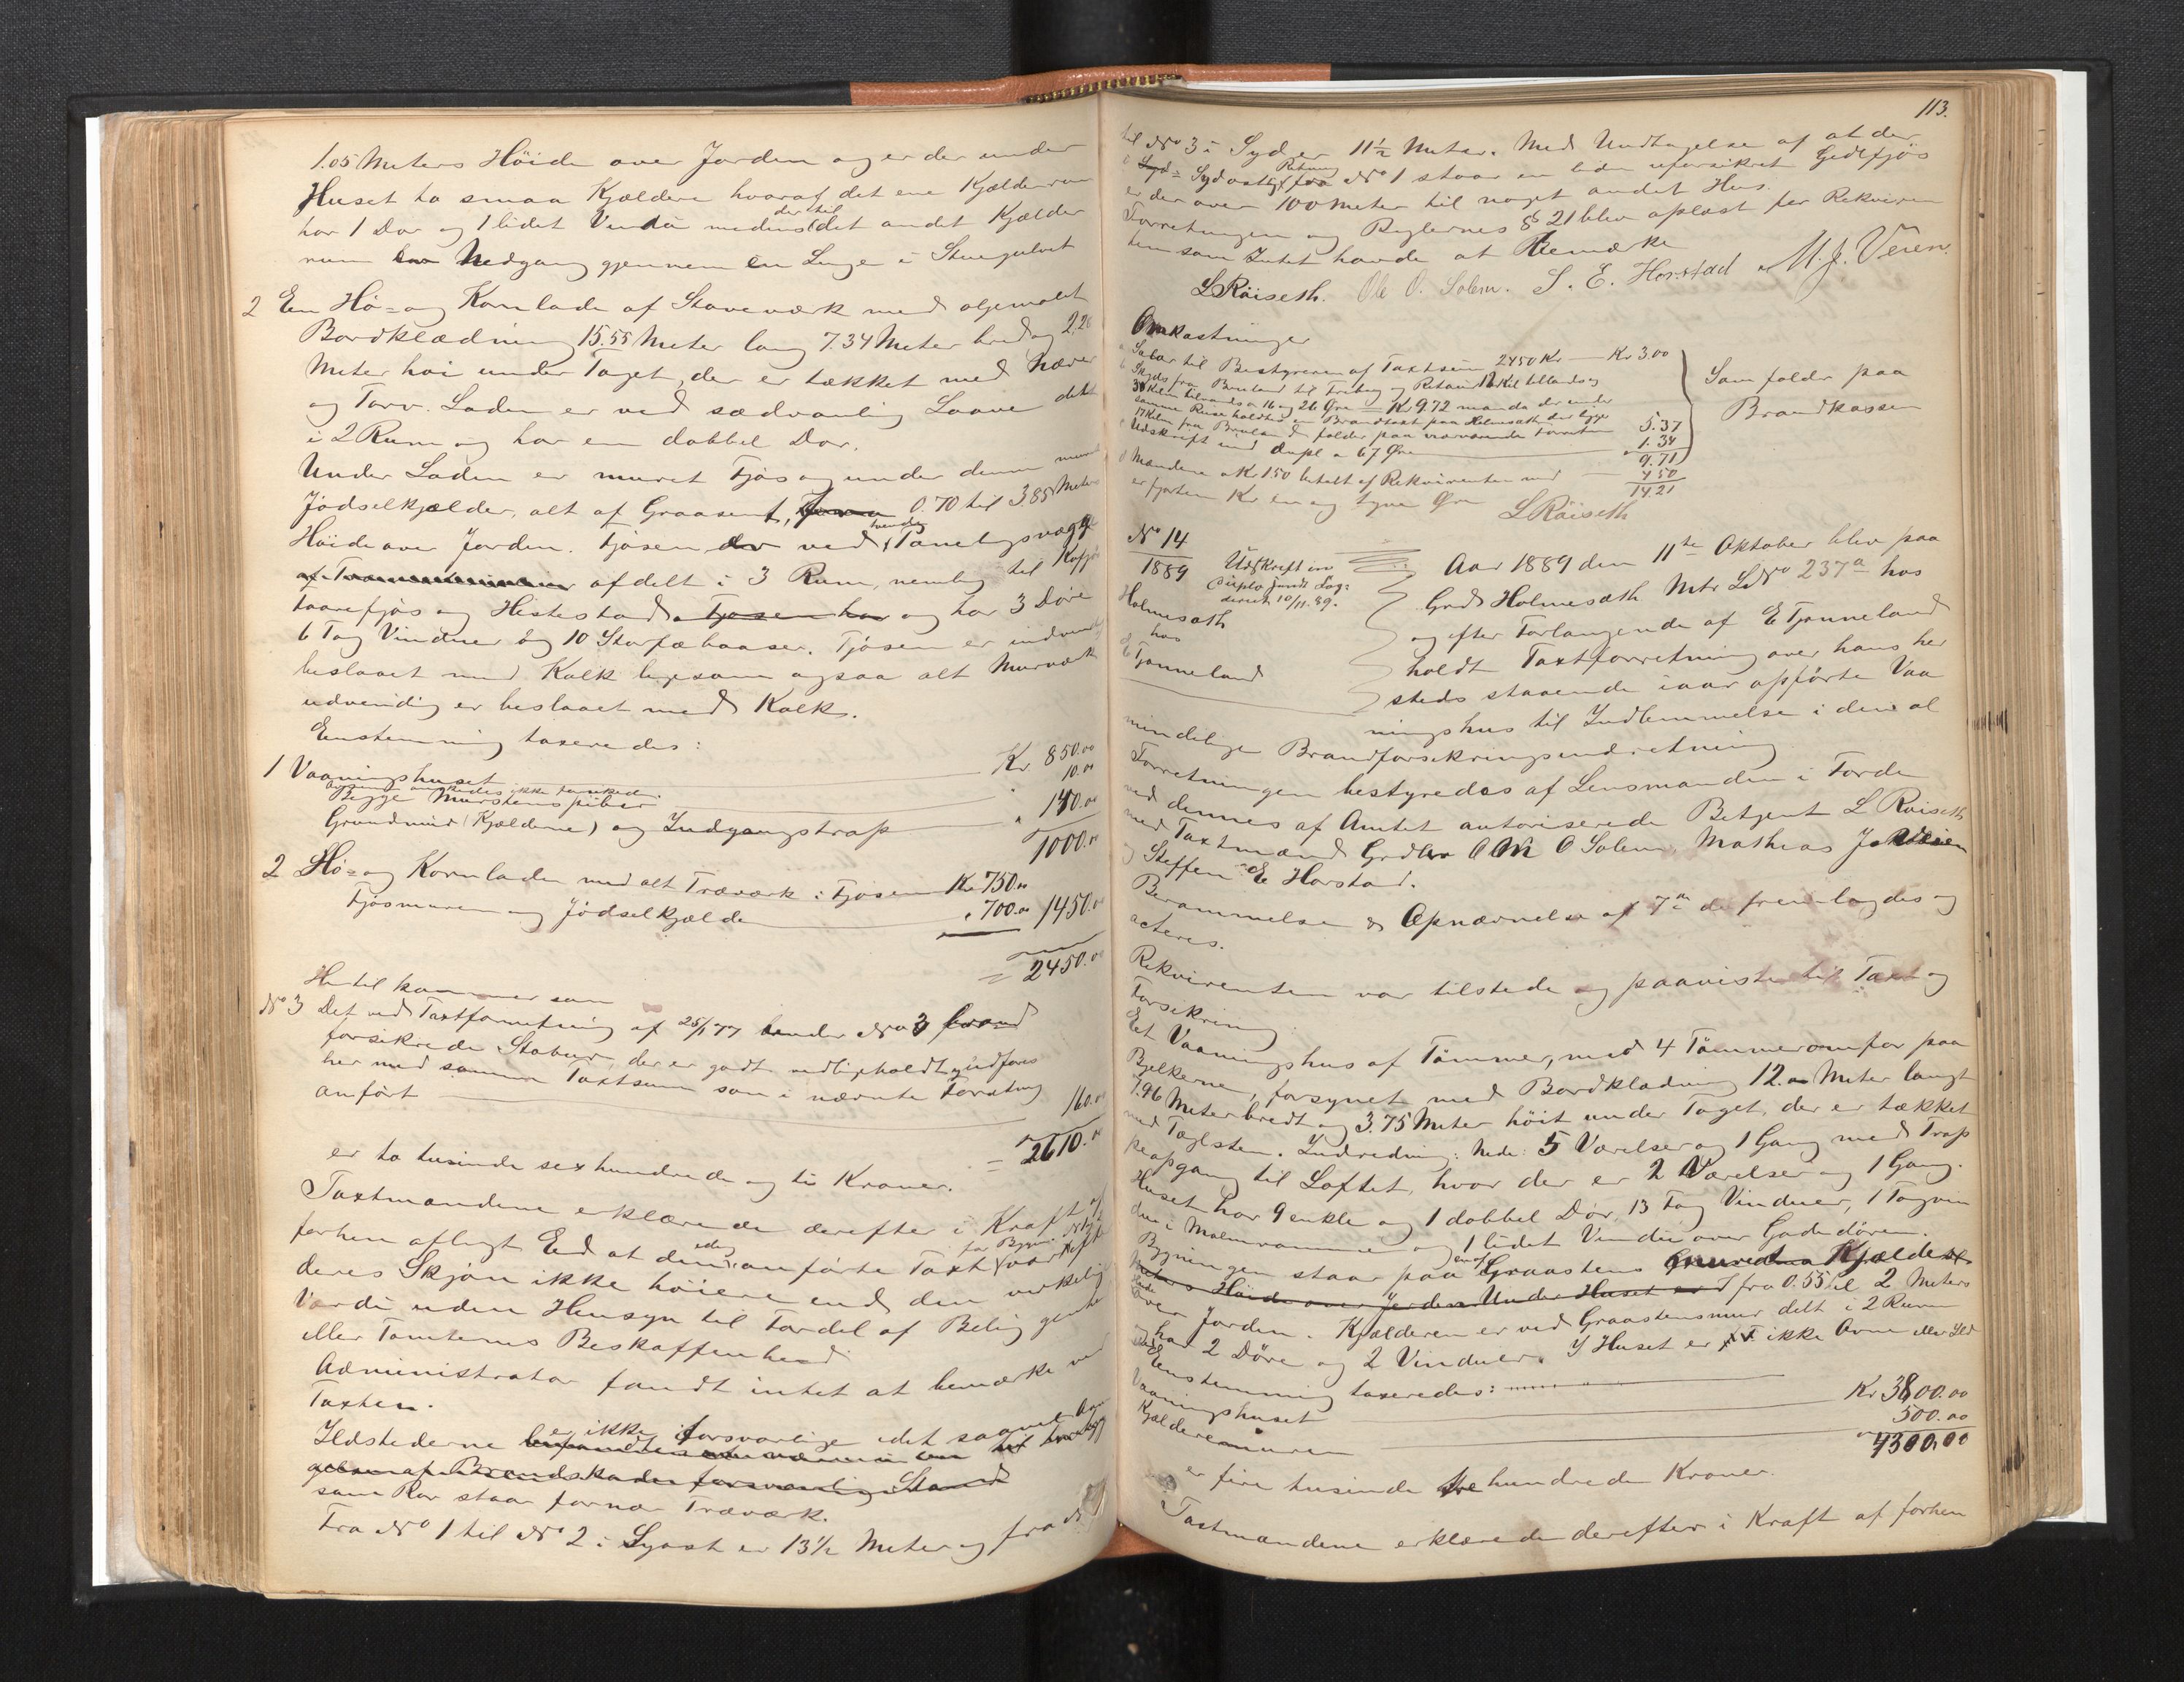 1.05 Meters Höide over Jorden og er der under
Huset to smaa Kjældere hvoraf det ene Kjælderrum
har 1 Dør og 1 lidet Vindu medens det andet Kjælder
der til
rum Nedgang gjennem en Luge i Stuegulvet
2 En Hö- og Kornlade af Staveværk med oljemalet
Bordklædning 15.55 Meter lang 7.34 Meter bred og 2.20
Meter höi under Taget, der er tækket med Næver
og Torv. Laden er ved sædvanlig Laave delt
i 2 Rum og har en dobbel Dør.
Under Laden er muret Fjøs og under denne muret
Jødselkjælder, alt af Graasten, 0.70 til 3.85 Meters
Höide over Jorden. Fjøsen ved tvende Panelsvægge
afdelt i 3 Rum, nemlig til Kofjøs
Faarefjøs og Hestestald og har 3 Döre
6 Fag Vinduer og 10 Storfæbaaser. Fjøsen er indvendig
beslaaet med Kalk ligesom ogsaa alt Murværk
udvendig er beslaaet med Kalk.
Eenstemmig taxeredes:
1 Vaaningshuset Kr 850.00
Begge Murstenspiber " 10.00
Grundmur (Kjælderne) og Indgangstrap " 140.00
1000.00
2 Hö- og Kornladen med alt Træværk i Fjøsen Kr 750.00
Fjøsmuren og Jødselkjælder " 700.00 1450.00
= 2450.00
Hertil kommer som
No 3 Det ved Taxtforretning af 25/1 77 under No 3 brand
forsikrede Stabur, der er godt vedligeholdt og indføres
her med samme Taxtsum som i nævnte Forretning
anført 160.00
= 2610.00
er to tusinde sex hundrede og ti Kroner.
Taxtmændene erklærede derefter i Kraft af
forhen aflagt Eed at den anførte Taxt var efter
deres Skjøn ikke höiere end den virkelige
Værdi uden Hensyn til Fordel af Beliggenhed
eller Tomternes Beskaffenhed
Administrator fandt intet at bemærke ved
Taxten.
Ildstederne er ikke forsvarlige idet saavel Ovn
som Rør staar fornær Træværk.
Fra No 1 til No 2 i Syost er 13½ Meter og fra No
113.
til No 3 i Syd er 11½ Meter. Med Undtagelse af at der
i Sydostlig Retning fra No 1 staar en liden uforsikret Gedefjøs
er der over 100 Meter til noget andet Hus.
Forretningen og Reglernes § 21 blev oplæst for Rekviren
ten som Intet havde at Bemærke
L Röiseth. Ole O. Solem. S. E. Horstad M. J. Veien.
Omkostninger
a Salar til Bestyreren af Taxtsum 2450 Kr — Kr 3.00
samme Reise holdtes en Brandtaxt paa Holmesæth der ligger
17 Kilm fra Bruland falder paa nærværende Forretn 5.37
c Udskrift ind dupl a 67 Øre 1.34
9.71
Som falder paa
Brandkassen
d Mændene a Kr 1.50 betalt af Rekvirenten med 4.50
14.21
er fjorten Kr en og tyve Øre
L Röiseth
No 14
1889
Holmesæth
hos
E Tjønneland
Udskrift in
duplo sendt Sog:
deriet 10/11.89.
Aar 1889 den 11te Oktober blev paa
Grd Holmesæth Mtr LNo 237a hos
og efter Forlangende af E Tjønneland
holdt Taxtforretning over hans her
steds staaende iaar opførte Vaa
ningshus til Indlemmelse i den al
mindelige Brandforsikringsindretning
Forretningen bestyredes af Lensmanden i Førde
ved dennes af Amtet autoriserede Betjent L Röiseth
med Taxtmænd Grdbr O O Solem, Mathias J Veien
og Steffen E Horstad.
Berammelse & Opnævnelse af 7de ds fremlagdes og
acteres.
Rekvirenten var tilstede og paaviste til Taxt og
Forsikring
Et Vaaningshus af Tömmer, med 4 Tömmeromfar paa
Bjelkerne, forsynet med Bordklædning 12.00 Meter langt
7.96 Meter bredt og 3.75 Meter höit under Taget, der er tækket
med Taglsten. Indredning: Nede: 5 Værelser og 1 Gang med Trap
peopgang til Loftet, hvor der er 2 Værelser og 1 Gang.
Huset har 9 enkle og 1 dobbel Dör, 13 Fag Vinduer, 1 Tagvin
due i Malmramme og 1 lidet Vindu over Gadedören.
Bygningen staar paa en af Graastens muret Kjælder
Meters Höide over Jorden. Under Huset er fra 0.55 til 2 Meters
Höide
over Jorden. Kjælderen er ved Graastensmur delt i 2 Rum
og har 2 Döre og 2 Vinduer. I Huset er ikke Ovne eller Ild
sted
Eenstemmig taxeredes:
Vaaningshuset Kr 3800.00
Kjælderemuren 500.00
4300.00
er fire tusinde tre hundrede Kroner.
Taxtmændene erklærede derefter i Kraft af forhen